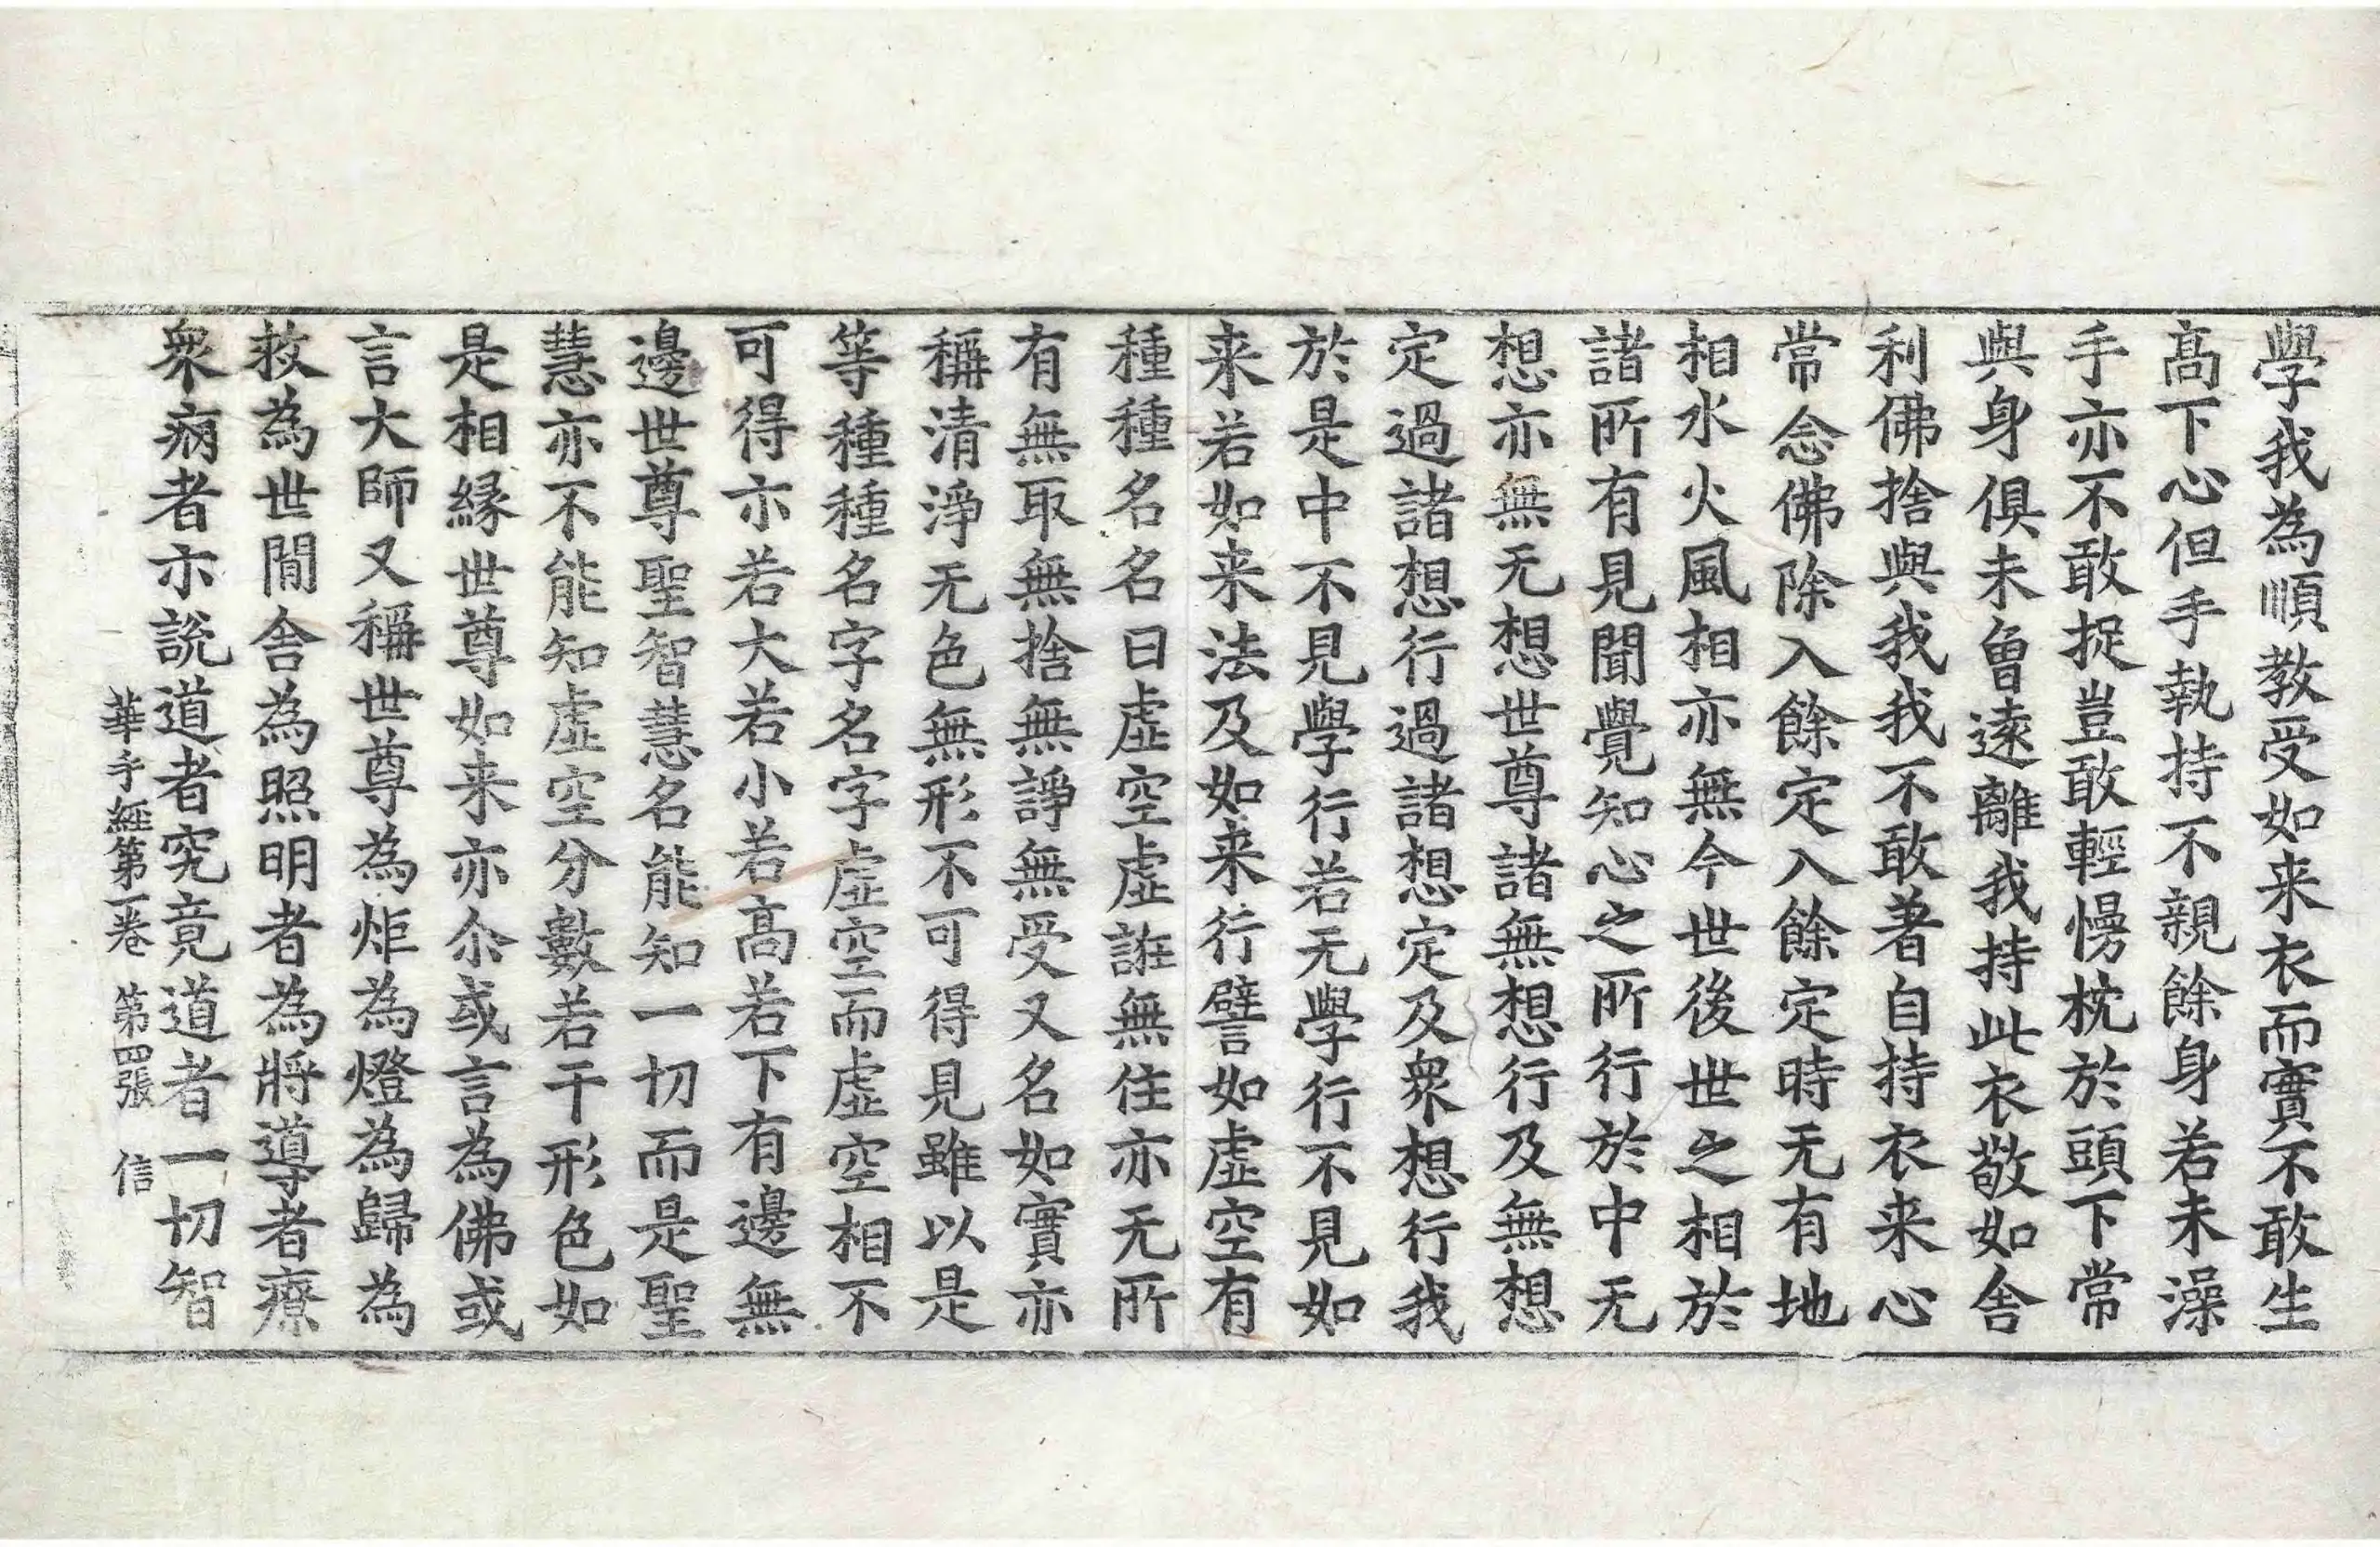 學我為順教受如来衣而實不敢生
髙下心但手執持不親餘身若未澡
手亦不敢捉豈敢輕慢枕於頭下常
與身俱未曾遠離我持此衣敬如舎
利佛捨與我我不敢著自持衣来心
常念佛除入餘定入餘定時无有地
相水火風相亦無今世後世之相於
諸所有見聞覺知心之所行於中无
想亦無无想世尊諸無想行及無想
定過諸想行過諸想定及衆想行我
於是中不見學行若无學行不見如
来若如来法及如来行譬如虚空有
種種名名曰虚空虚誑無住亦无所
有無取無捨無諍無受又名如實亦
稱清淨无色無形不可得見雖以是
等種種名字名字虚空而虚空相不
可得亦若大若小若髙若下有邊無
邊世尊聖智慧名能知一切而是聖
慧亦不能知虚空分數若干形色如
是相縁世尊如来亦尒或言為佛或
言大師又稱世尊為炬為燈為歸為
救為世間舎為照明者為將導者療
衆病者亦說道者究竟道者一切智
華手經第一卷 第四張 信